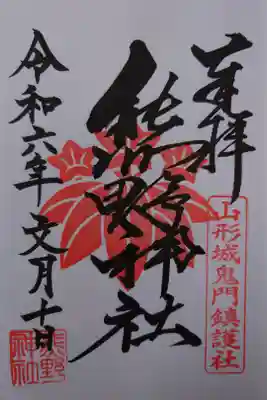 奉拝
山形城鬼門鎮護社
熊野神社
令和六年文月十日
熊野
神社